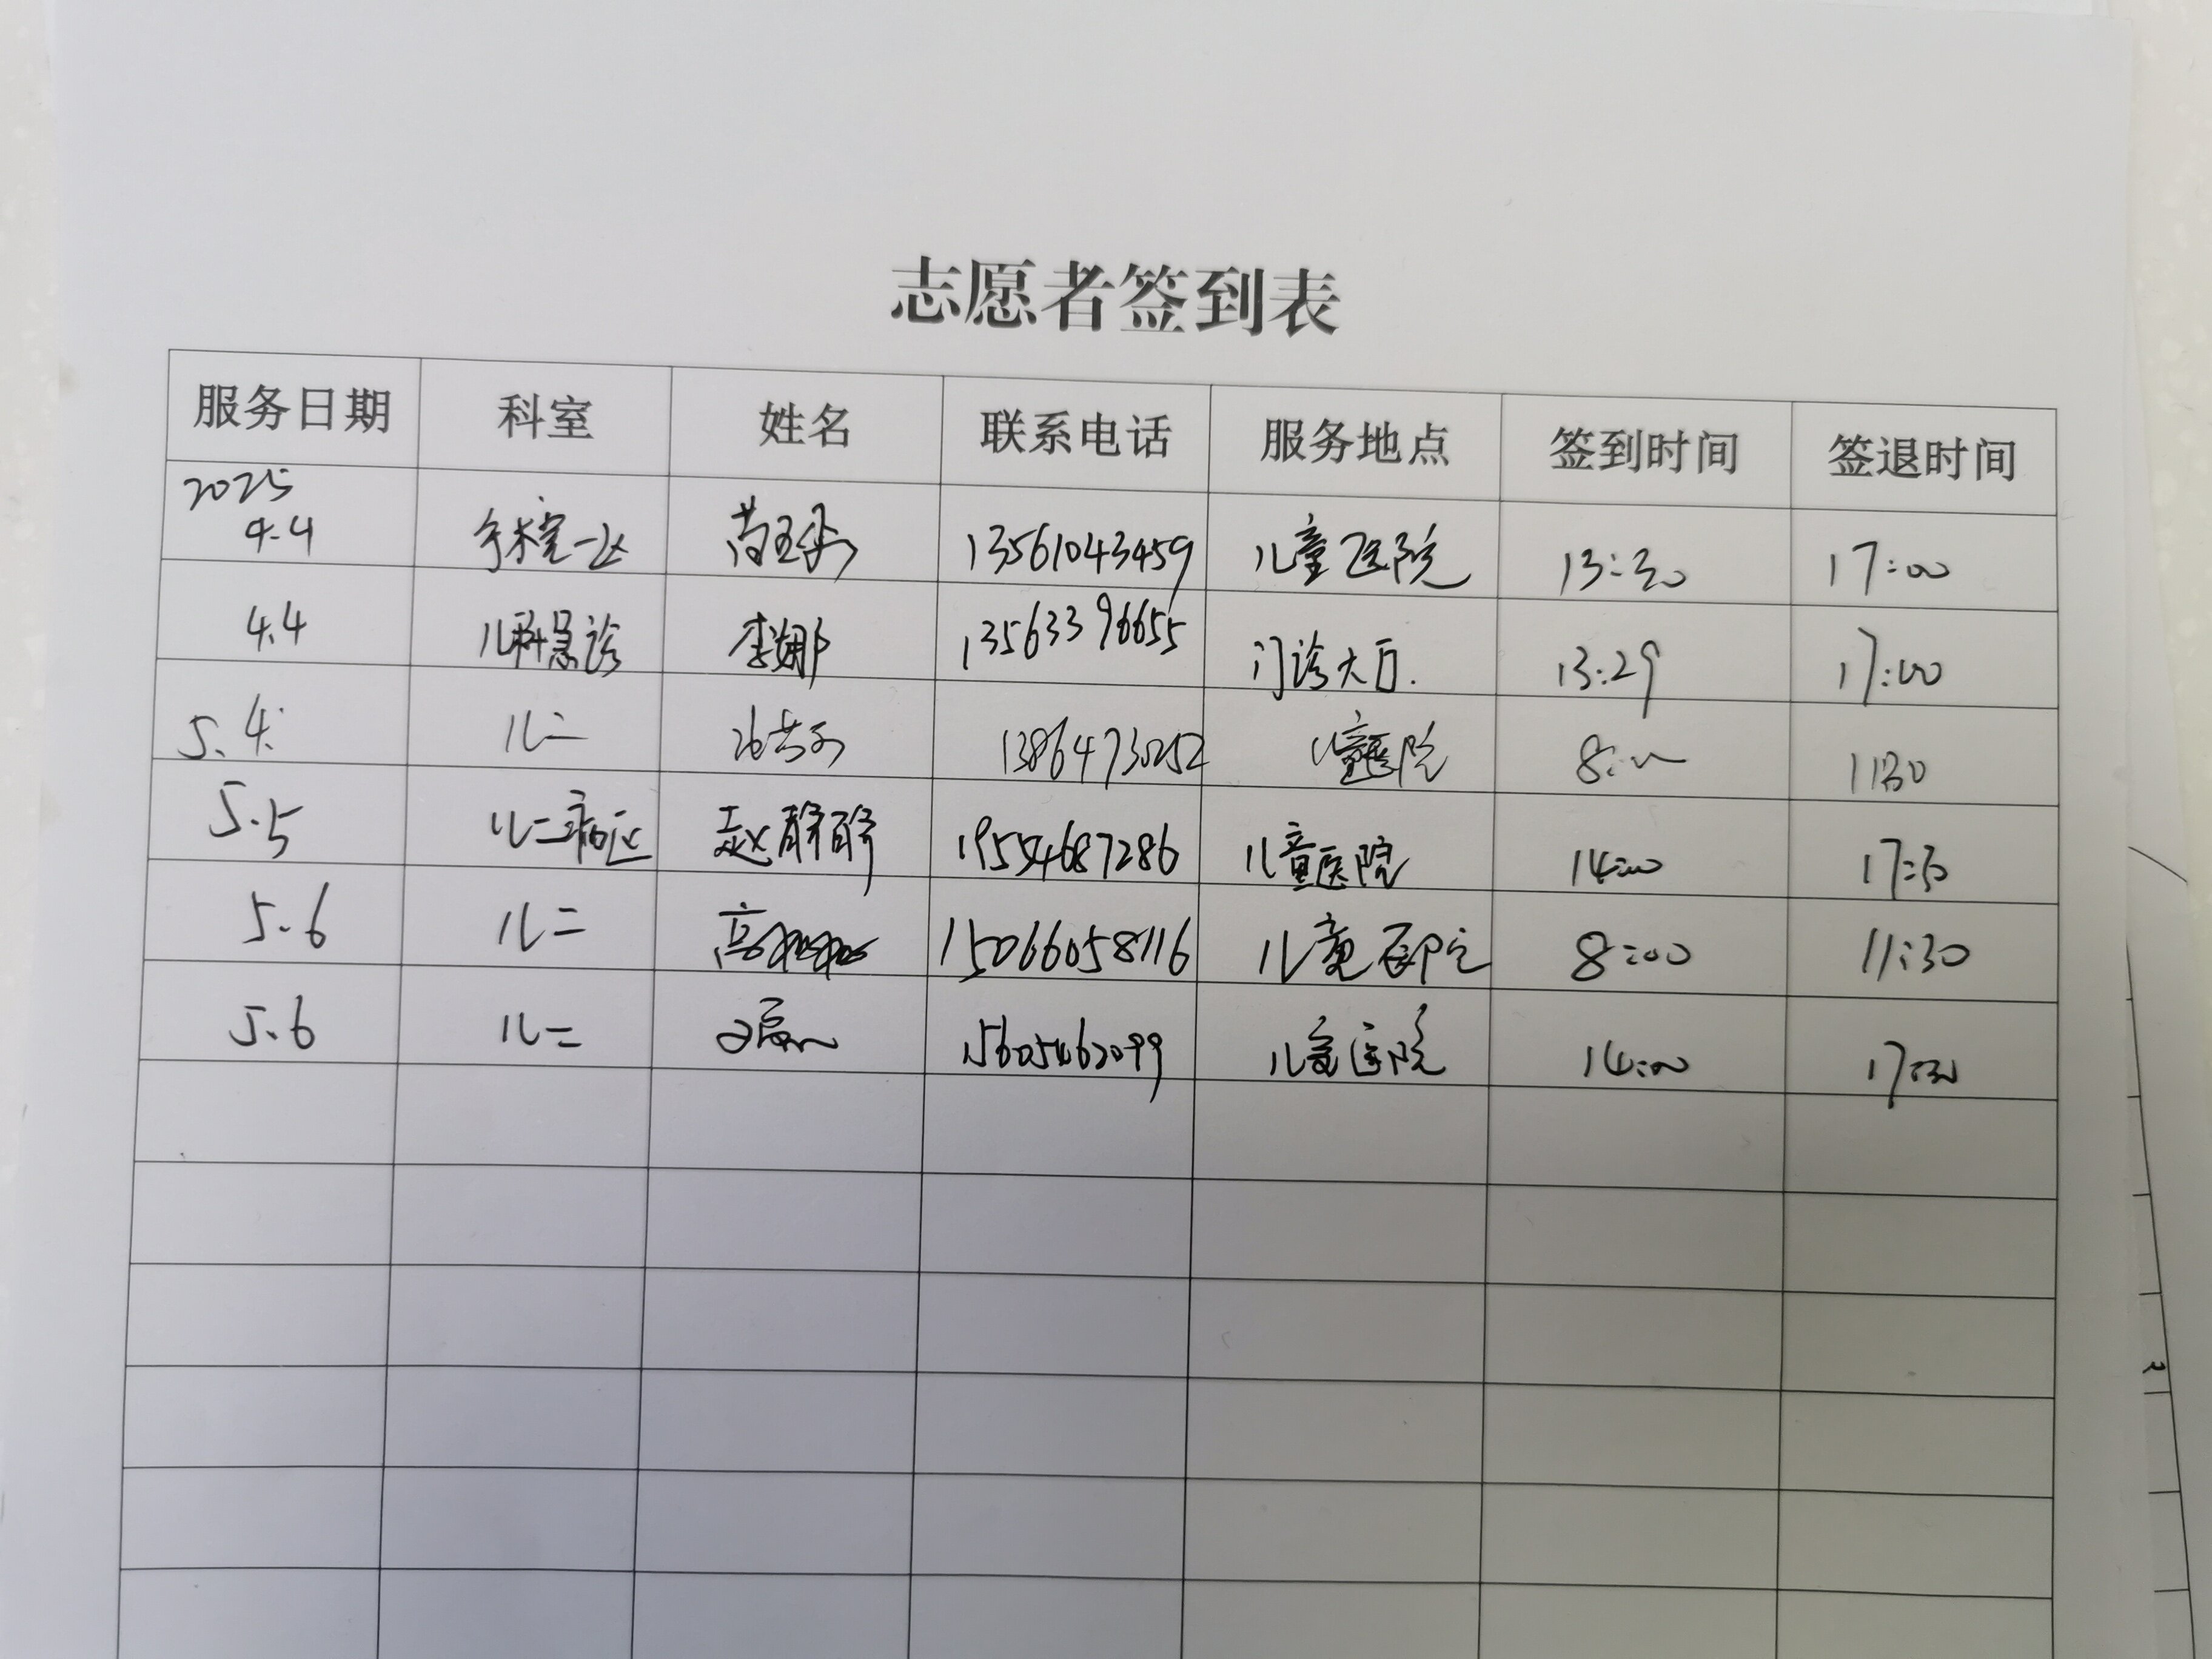 志愿者签到表
服务日期 科室 姓名 联系电话 服务地点 签到时间 签退时间
2025
4.4 手术室一区 13561043459 儿童医院 13:30 17:00
4.4 儿科急诊 李娜 13563396655 门诊大厅. 13:29 17:00
5.4 儿二 儿童医院 8:00 1130
5.5 儿二病区 赵静静 19554687286 儿童医院 14:00 17:30
5.6 儿二 高 15066058116 儿童医院 8:00 11:30
5.6 儿二 15605462099 儿童医院 14:00 17:30